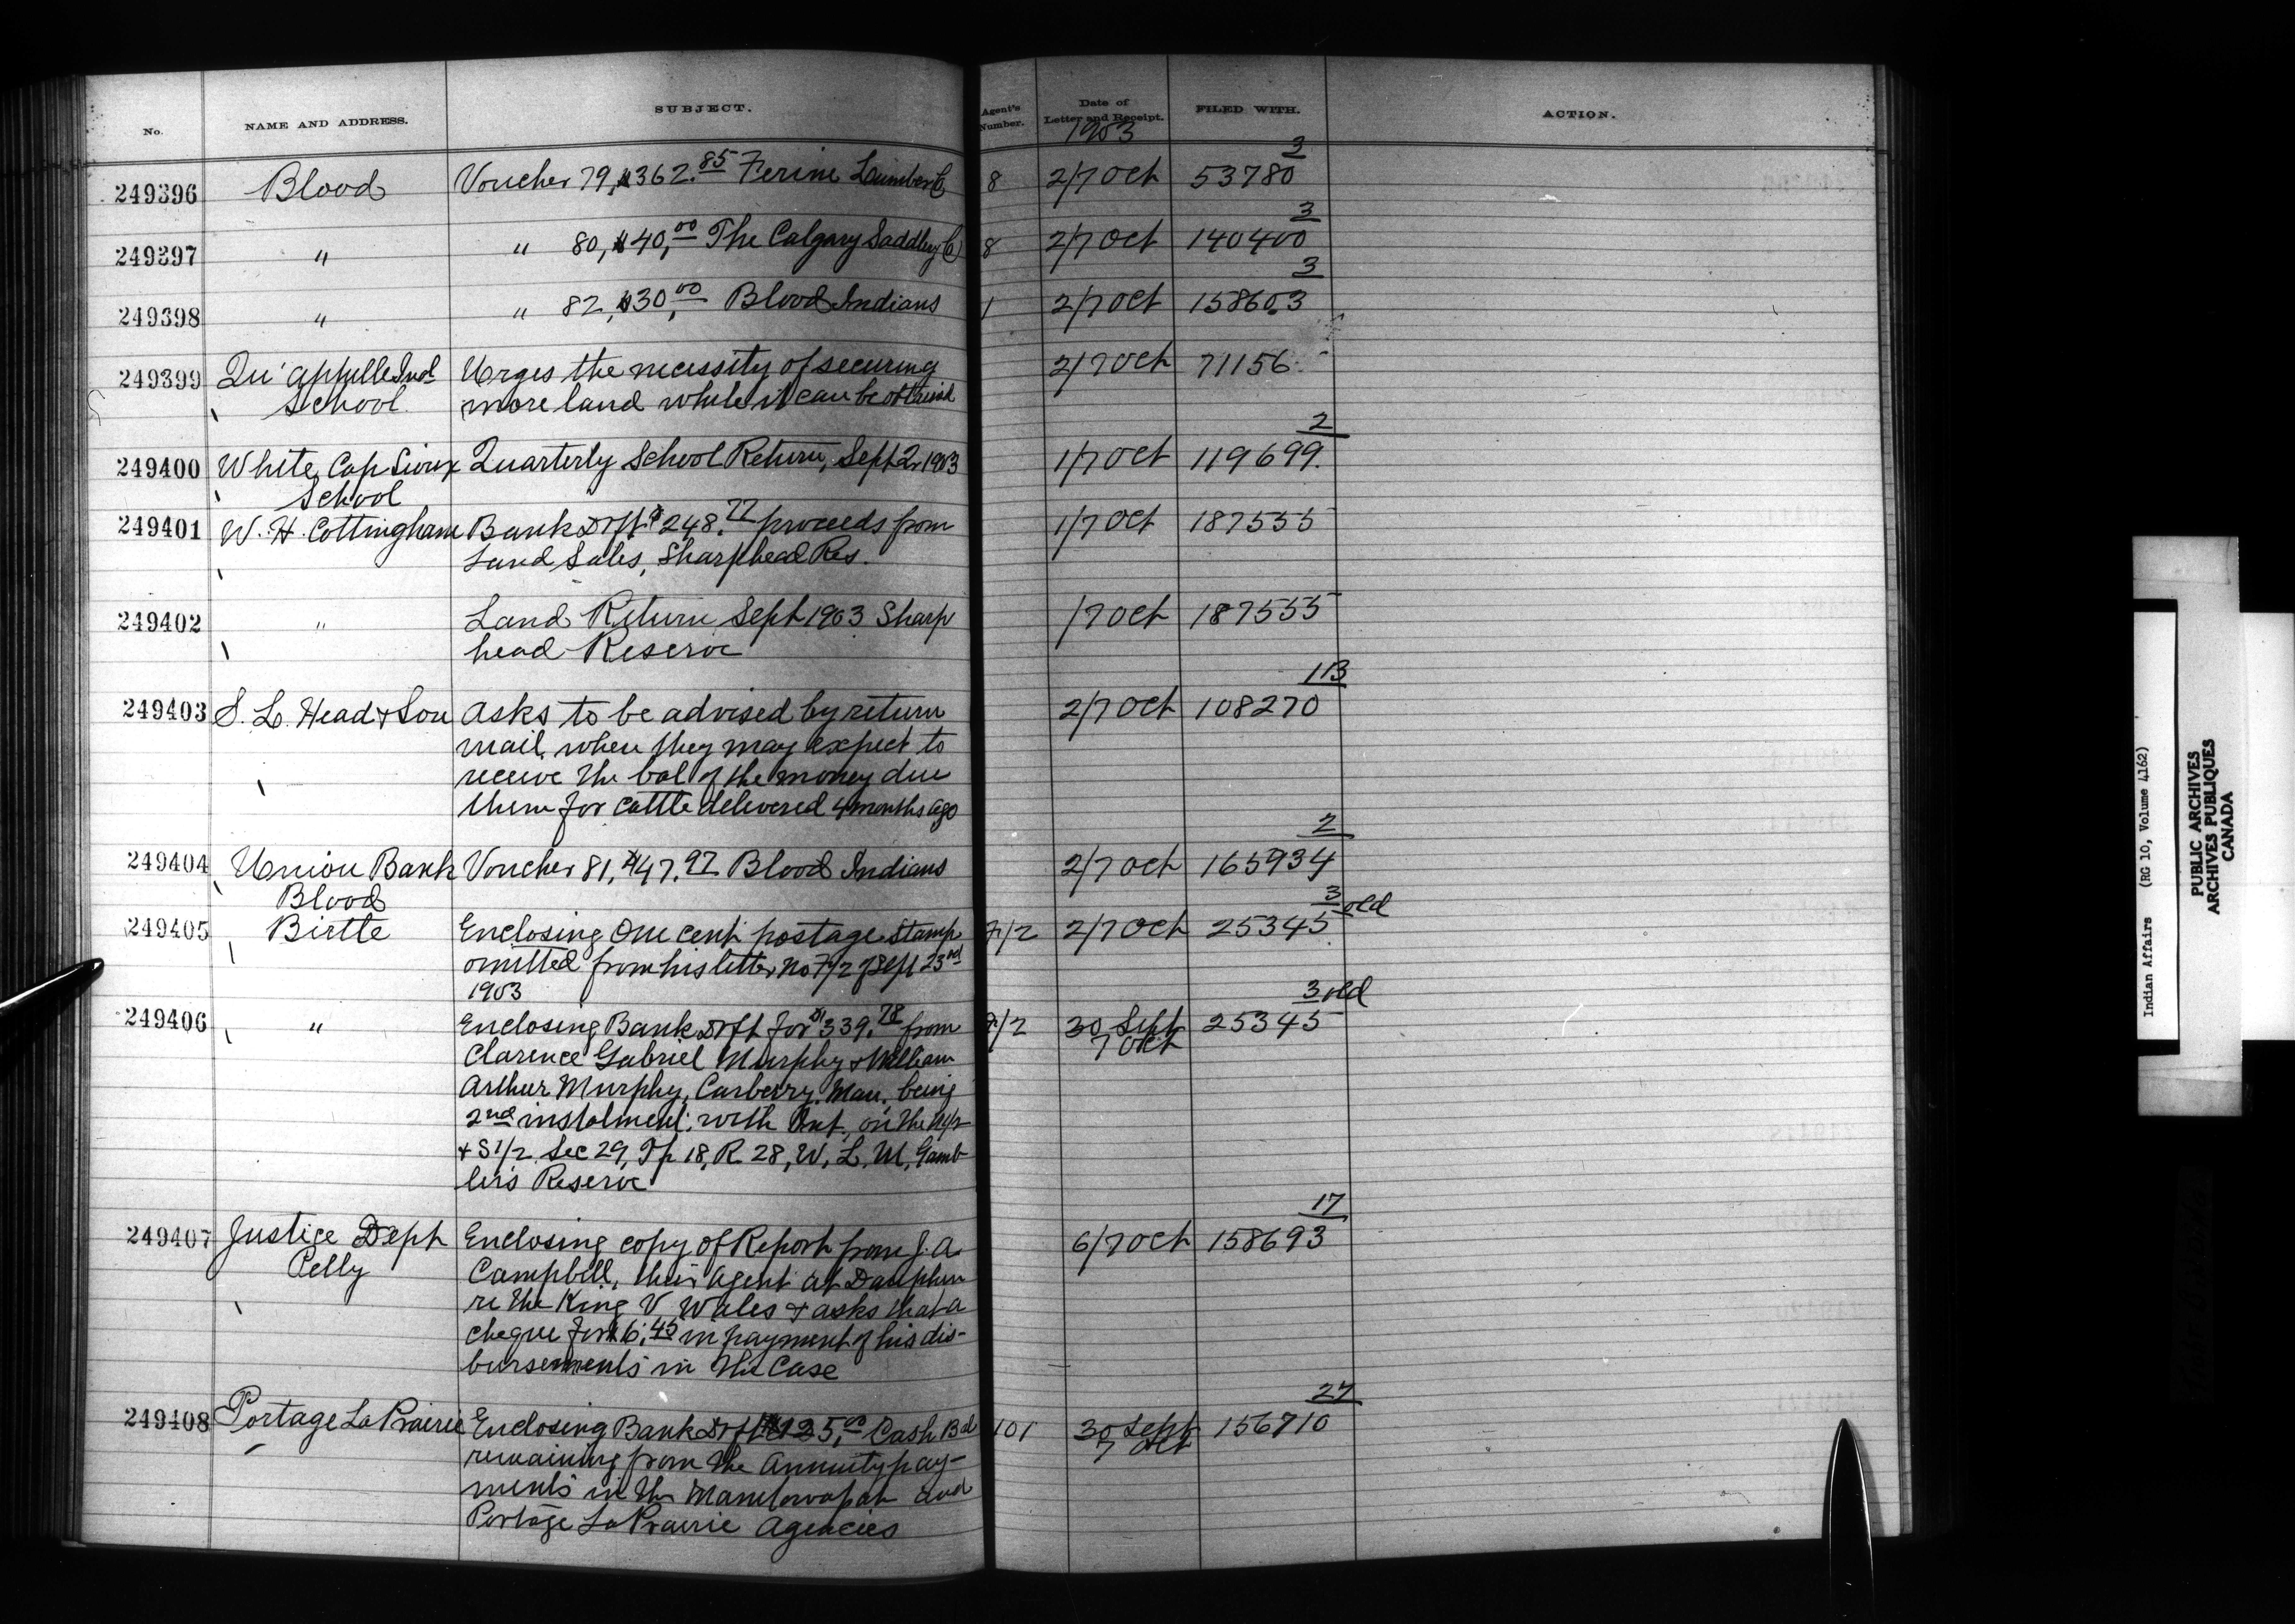 No. NAME AND ADDRESS. SUBJECT. Agent's Number. Date of Letter and Receipt. FILED WITH. ACTION.
1903
3
249396 Blood Voucher 79, $362.85 Ferine Lumber Co 8 2/7 Oct 53780
3
249397 " " 80, $40,00 The Calgary Saddlery Co 8 2/7 Oct 140400
3
249398 " " 82, $30,00 Blood Indians 1 2/7 Oct 158603
249399 Qu'appelle Indl Urges the necessity of securing 2/7 Oct 71156
School. more land while it can be obtained
2
249400 White Cap Sioux Quarterly School Return, Sept Qr 1903 1/7 Oct 119699.
School
249401 W. H. Cottingham Bank Drft $248.77 proceeds from 1/7 Oct 187555
Land Sales, Sharphead Res.
249402 " Land Return Sept 1903 Sharp 1/7 Oct 187555
head Reserve
113
249403 S. L. Head & Son Asks to be advised by return 2/7 Oct 108270
mail, when they may expect to
receive the bal of the money due
them for cattle delivered 4 months ago
2
249404 Union Bank Voucher 81, $47.97 Blood Indians 2/7 Oct 165934
Blood
3 old
249405 Birtle Enclosing One cent postage stamp 7/2 2/7 Oct 25345
omitted from his letter No 7/2 of Sept 23rd
1903
3 old
249406 " Enclosing Bank Drft for $339.78 from 7/2 30 Sept 25345
7 Oct
Clarence Gabriel Murphy & William
Arthur Murphy, Carberry, Man, being
2nd instalment, with Int., on the N1/2
& S1/2 Sec 29, Tp 18, R 28, W, 1, M, Gamb
ler's Reserve
17
249407 Justice Dept Enclosing copy of Report from J. A. 6/7 Oct 158693
Pelly Campbell, their agent at Dauphin
re the King V Wales & asks that a
cheque for $6.45 in payment of his dis-
bursements in the Case
27
249408 Portage La Prairie Enclosing Bank Drft $125,00 Cash Bal 101 30 Sept 156710
7 Oct
remaining from the Annuity pay-
ments in the Manitowapah and
Portage La Prairie Agencies
Indian Affairs (RG 10, Volume 4162)
PUBLIC ARCHIVES
ARCHIVES PUBLIQUES
CANADA